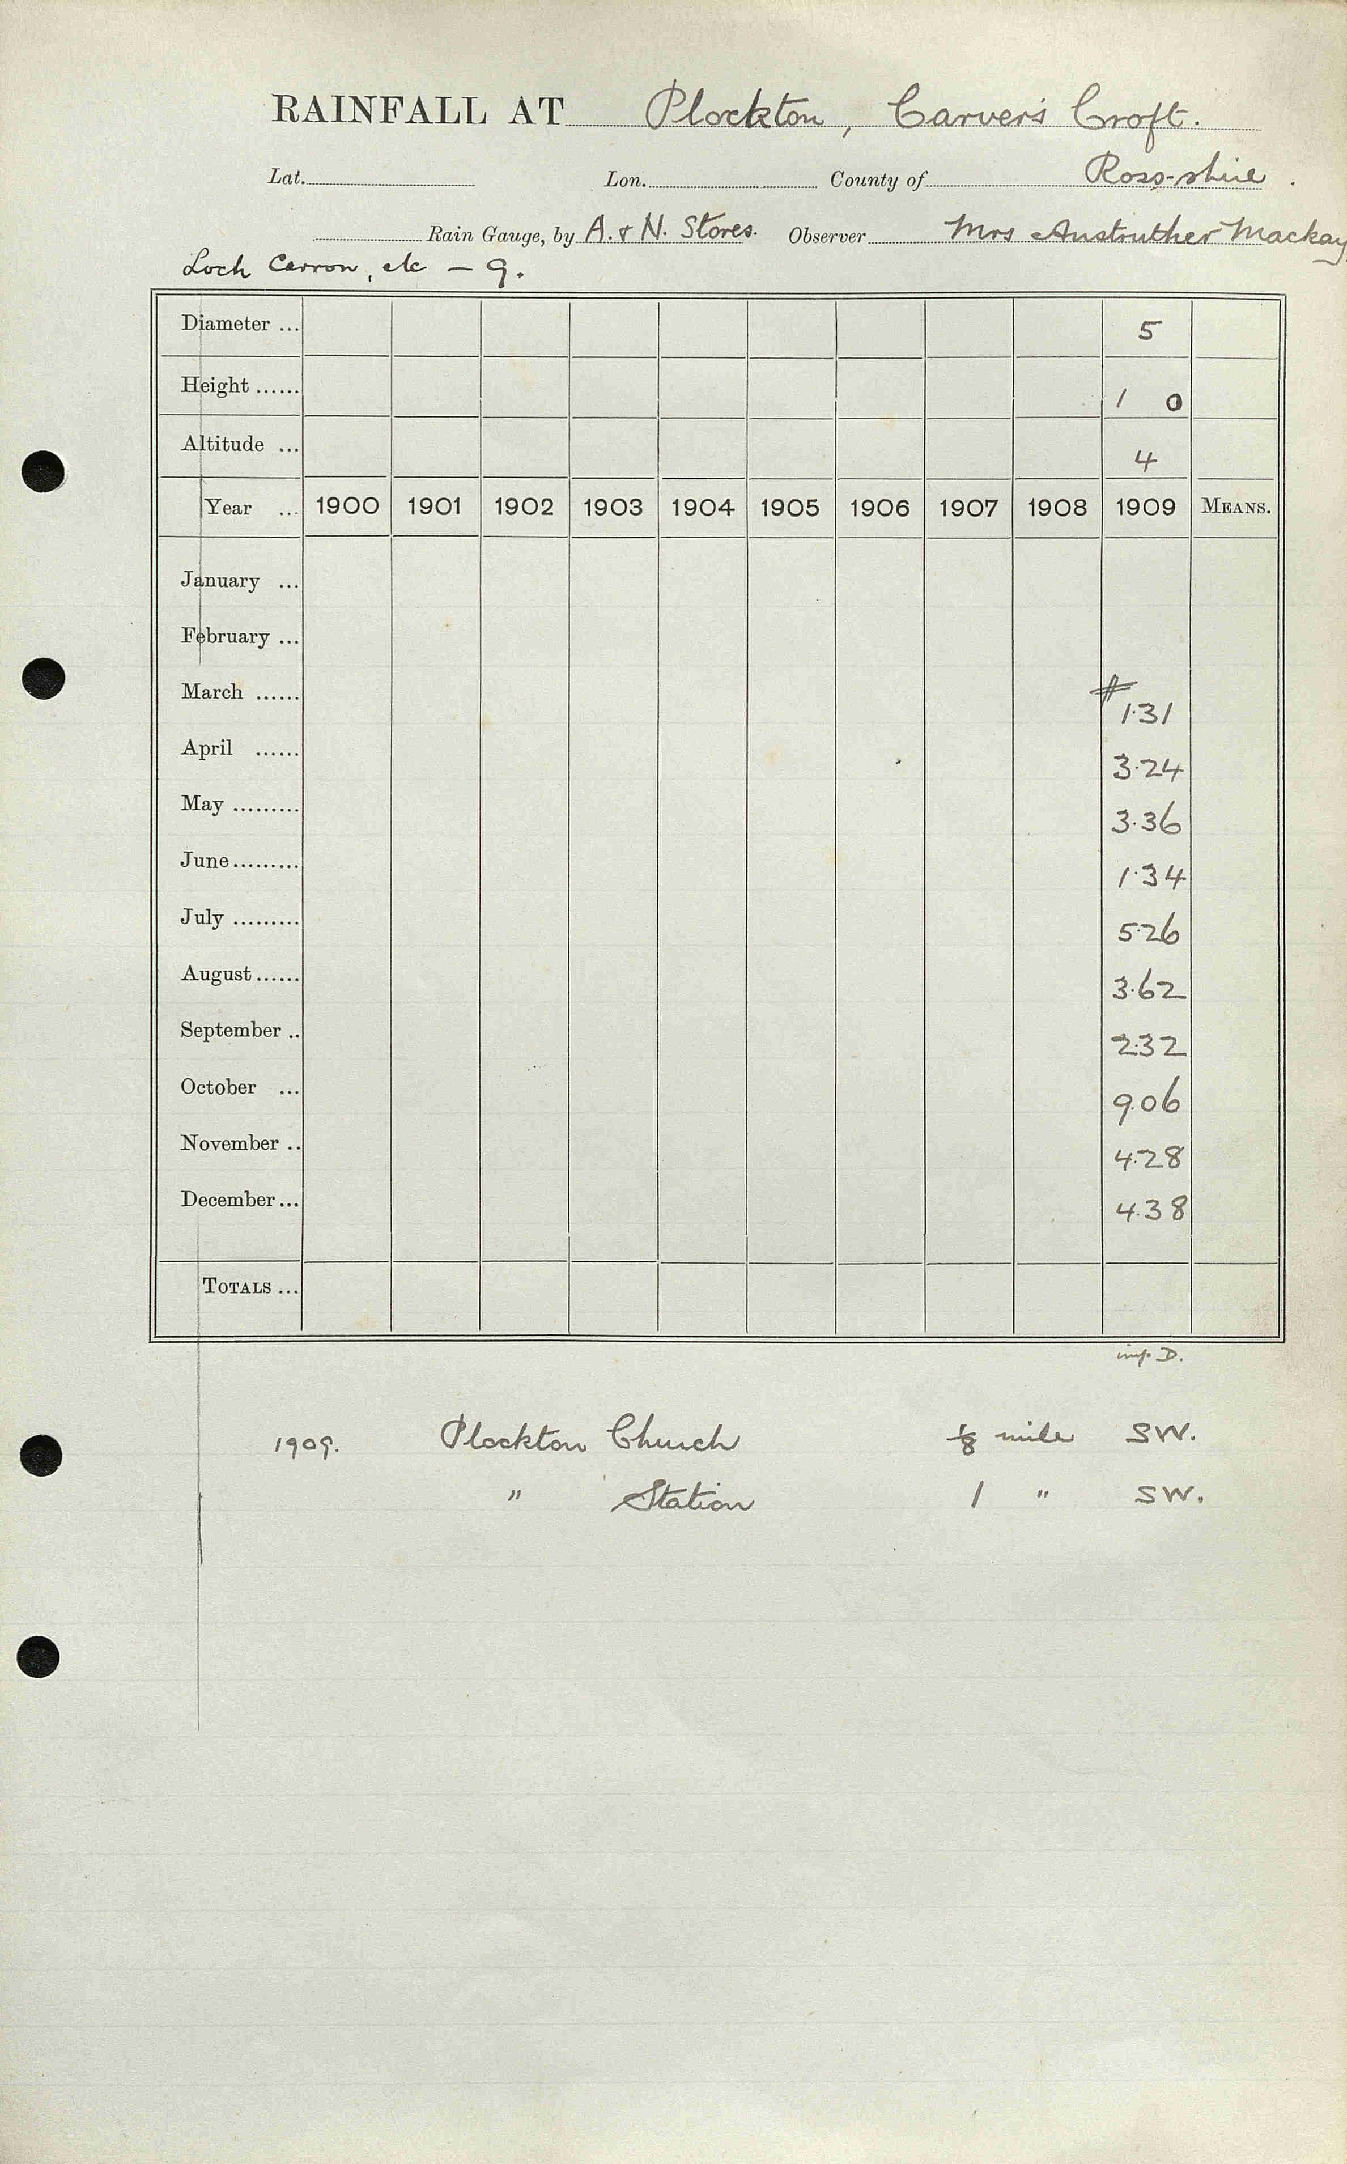 RAINFALL AT Plockton, Carver's Croft.
Lat. Lon. County of Ross-shire.
Rain Gauge, by A. & N. Stores. Observer Mrs Anstruther Mackay
Loch Carron, etc — 9.
Diameter ... 5
Height ...... 1 0
Altitude ... 4
Year ... 1900 1901 1902 1903 1904 1905 1906 1907 1908 1909 MEANS.
January ...
February ...
March ...... # 1.31
April ...... 3.24
May ......... 3.36
June ......... 1.34
July ......... 5.26
August ...... 3.62
September .. 2.32
October ... 9.06
November .. 4.28
December ... 4.38
TOTALS ...
imp D.
1909. Plockton Church 1/8 mile SW.
" Station 1 " SW.